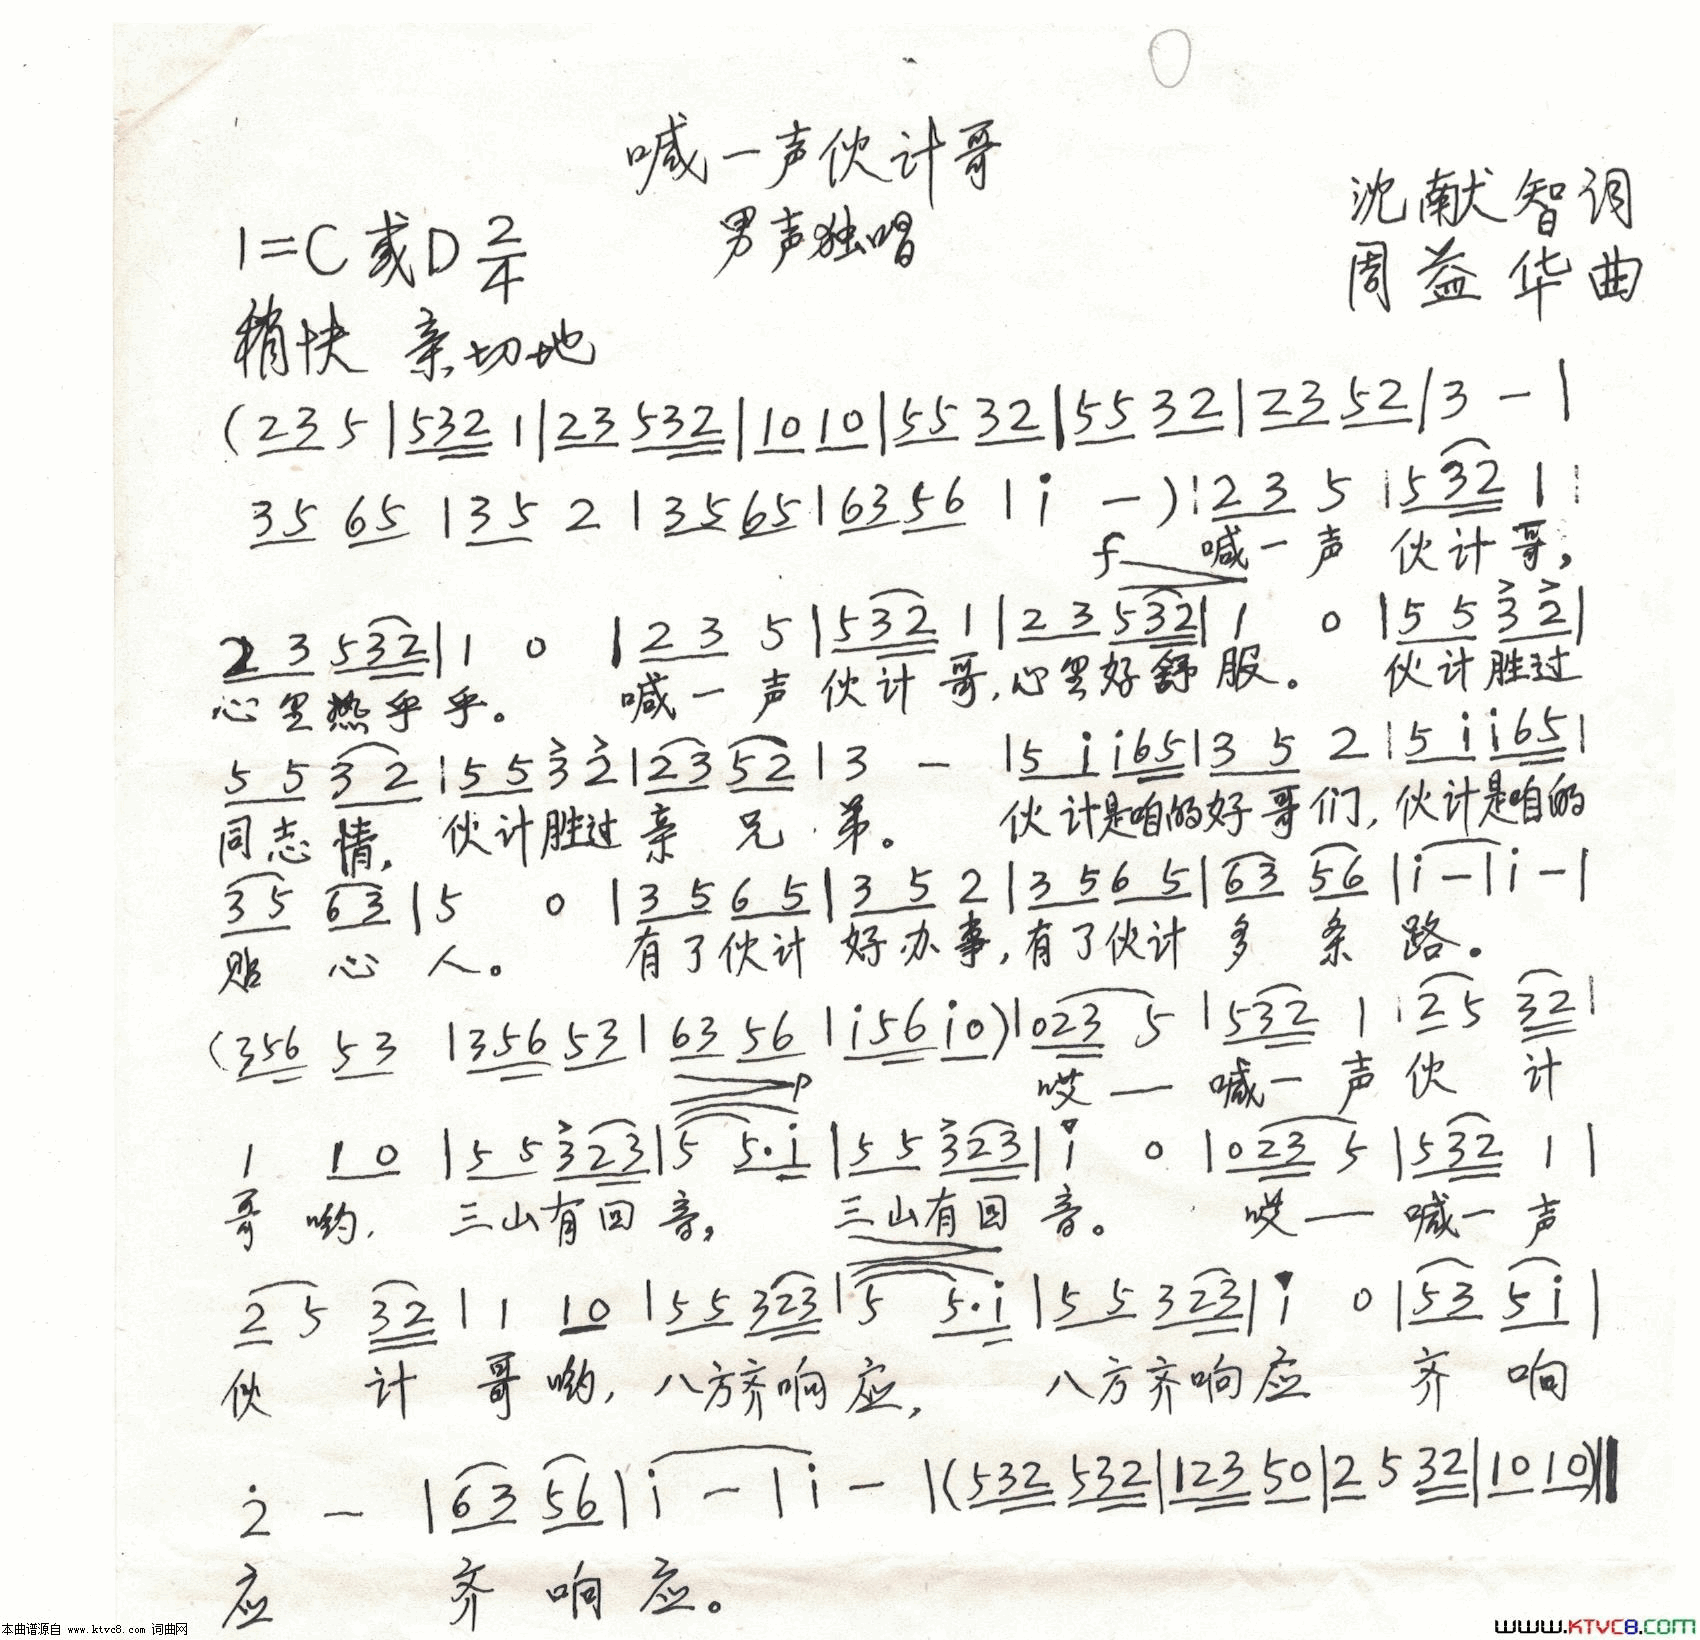 喊一声伙计哥
男声独唱
沈献智词
周益华曲
1=C或D 2/4
稍快 亲切地
(23 5|532 1|23 532|10 10|55 32|55 32|23 52|3 -|
35 65|35 2|35 65|63 56|i -)|23 5|532 1|
f 喊一声 伙计哥,
23 532|1 0|23 5|532 1|23 532|1 0|55 32|
心里热乎乎。 喊一声伙计哥,心里好舒服。 伙计胜过
55 32|55 32|23 52|3 -|5i i65|35 2|5i i65|
同志情, 伙计胜过亲兄弟。 伙计是咱的好哥们,伙计是咱的
35 63|5 0|35 65|35 2|35 65|63 56|i -|i -|
贴心人。 有了伙计好办事,有了伙计多条路。
(356 53|356 53|63 56|i56 i0)|023 5|532 1|25 32|
p 哎— 喊一声伙计
1 10|55 323|5 5·i|55 323|i 0|023 5|532 1|
哥哟, 三山有回音, 三山有回音。 哎— 喊一声
25 32|1 10|55 323|5 5·i|55 323|i 0|53 5i|
伙计哥哟,八方齐响应, 八方齐响应 齐响
2 -|63 56|i -|i -|(532 532|123 50|25 32|10 10)‖
应 齐响应。
本曲谱源自 www.ktvc8.com 词曲网
WWW.KTVC8.COM